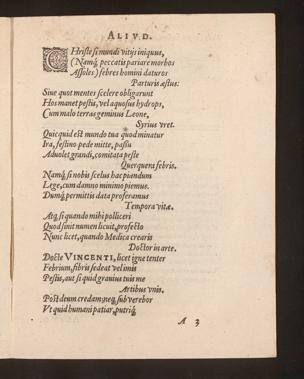 ALIVD.
CHriste si mundi vitijs iniquus,
(Namq́; peccatis pariare morbos
Assoles) febres homini daturos
Parturis æstus:
Siue quot mentes scelere obligarunt
Hos manet pestis, vel aquosus hydrops,
Cum malo terras geminus Leone,
Syrius vret.
Quicquid est mundo tua quod minatur
Ira, festino pede mitte, passu
Aduolet grandi, comitata peste
Querquera febris.
Namq́; si nobis scelus hac piandum
Lege, cum damno minimo piemus.
Dumq́; permittis data proferamus
Tempora vitæ.
Atq́; si quando mihi polliceri
Quod sinit numen licuit, profecto
Nunc licet, quando Medica crearis
Doctor in arte.
Docte VINCENTI, licet igne tenter
Febrium, fibris sedeat vel imis
Pestis, aut si quid grauius tuis me
Artibus vnis.
Post deum credam; neq́; sub verebor
Vt quid humani patiar, putrisq́;
A 3